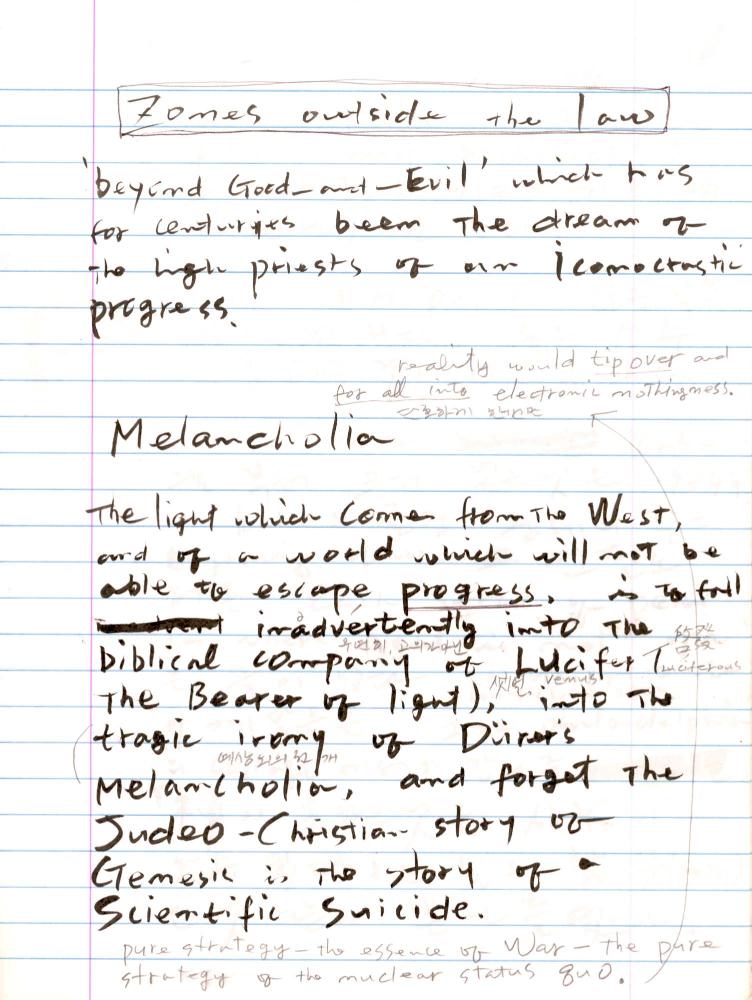 Zones outside the law
'beyond Good-and-Evil' which has
for centuries been The dream of
the high priests of an iconocrastic
progress.
reality would tip over and
for all into electronic nothingness.
단호하게 보내면
Melancholia
The light which comes from The West,
and of a world which will not be
able to escape progress, is to fall
inadvertently into The
우연히, 고의가 아닌
biblical company of Lucifer (Luciferous
샛별, venus
The Bearer of light), into The
tragic irony of Dürer's
예상외의 전개
Melancholia, and forget The
Judeo-Christian story of
Genesis is The story of a
Scientific Suicide.
pure strategy - the essence of War - the pure
strategy of the nuclear status quo.